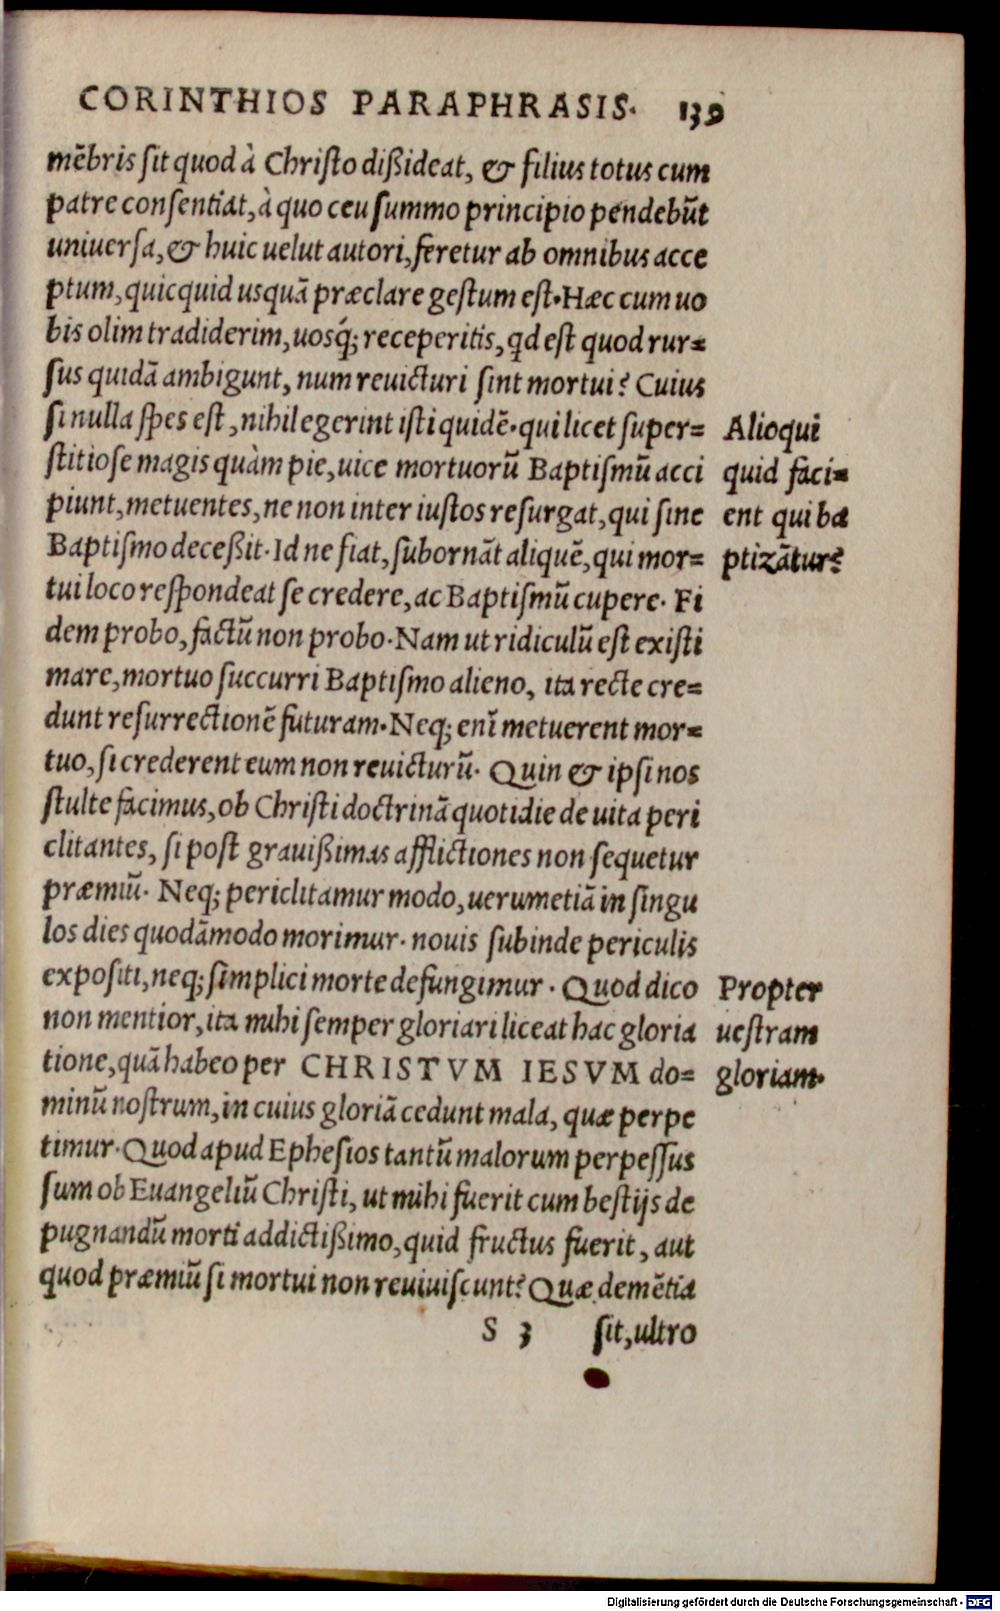 CORINTHIOS PARAPHRASIS. 139
mẽbris sit quod à Christo dißideat, & filius totus cum
patre consentiat, à quo ceu summo principio pendebũt
uniuersa, & huic uelut autori, feretur ab omnibus acce
ptum, quicquid usquã præclare gestum est. Hæc cum uo
bis olim tradiderim, uosq́; receperitis, qd est quod rur=
sus quidã ambigunt, num reuicturi sint mortui? Cuius
si nulla spes est, nihil egerint isti quidẽ. qui licet super=
stitiose magis quàm pie, uice mortuorũ Baptismũ acci
piunt, metuentes, ne non inter iustos resurgat, qui sine
Baptismo deceßit. Id ne fiat, subornãt aliquẽ, qui mor=
tui loco respondeat se credere, ac Baptismũ cupere. Fi
dem probo, factũ non probo. Nam ut ridiculũ est existi
mare, mortuo succurri Baptismo alieno, ita recte cre=
dunt resurrectionẽ futuram. Neq; enĩ metuerent mor=
tuo, si crederent eum non reuicturũ. Quin & ipsi nos
stulte facimus, ob Christi doctrinã quotidie de uita peri
clitantes, si post grauißimas afflictiones non sequetur
præmiũ. Neq; periclitamur modo, uerumetiã in singu
los dies quodãmodo morimur. nouis subinde periculis
expositi, neq; simplici morte defungimur. Quod dico
non mentior, ita mihi semper gloriari liceat hac gloria
tione, quã habeo per CHRISTVM IESVM do=
minũ nostrum, in cuius gloriã cedunt mala, quæ perpe
timur. Quod apud Ephesios tantũ malorum perpessus
sum ob Euangeliũ Christi, ut mihi fuerit cum bestijs de
pugnandũ morti addictißimo, quid fructus fuerit, aut
quod præmiũ si mortui non reuiuiscunt? Quæ demẽtia
S 3 sit, ultro
Alioqui
quid faci=
ent qui ba
ptizãtur?
Propter
uestram
gloriam.
Digitalisierung gefördert durch die Deutsche Forschungsgemeinschaft - DFG